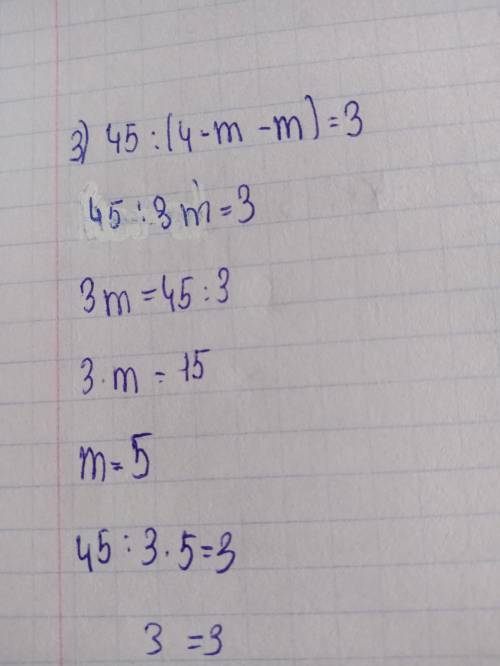 3) 45 : (4 - m - m) = 3
45 : 3m = 3
3m = 45 : 3
3 · m = 15
m = 5
45 : 3 · 5 = 3
3 = 3